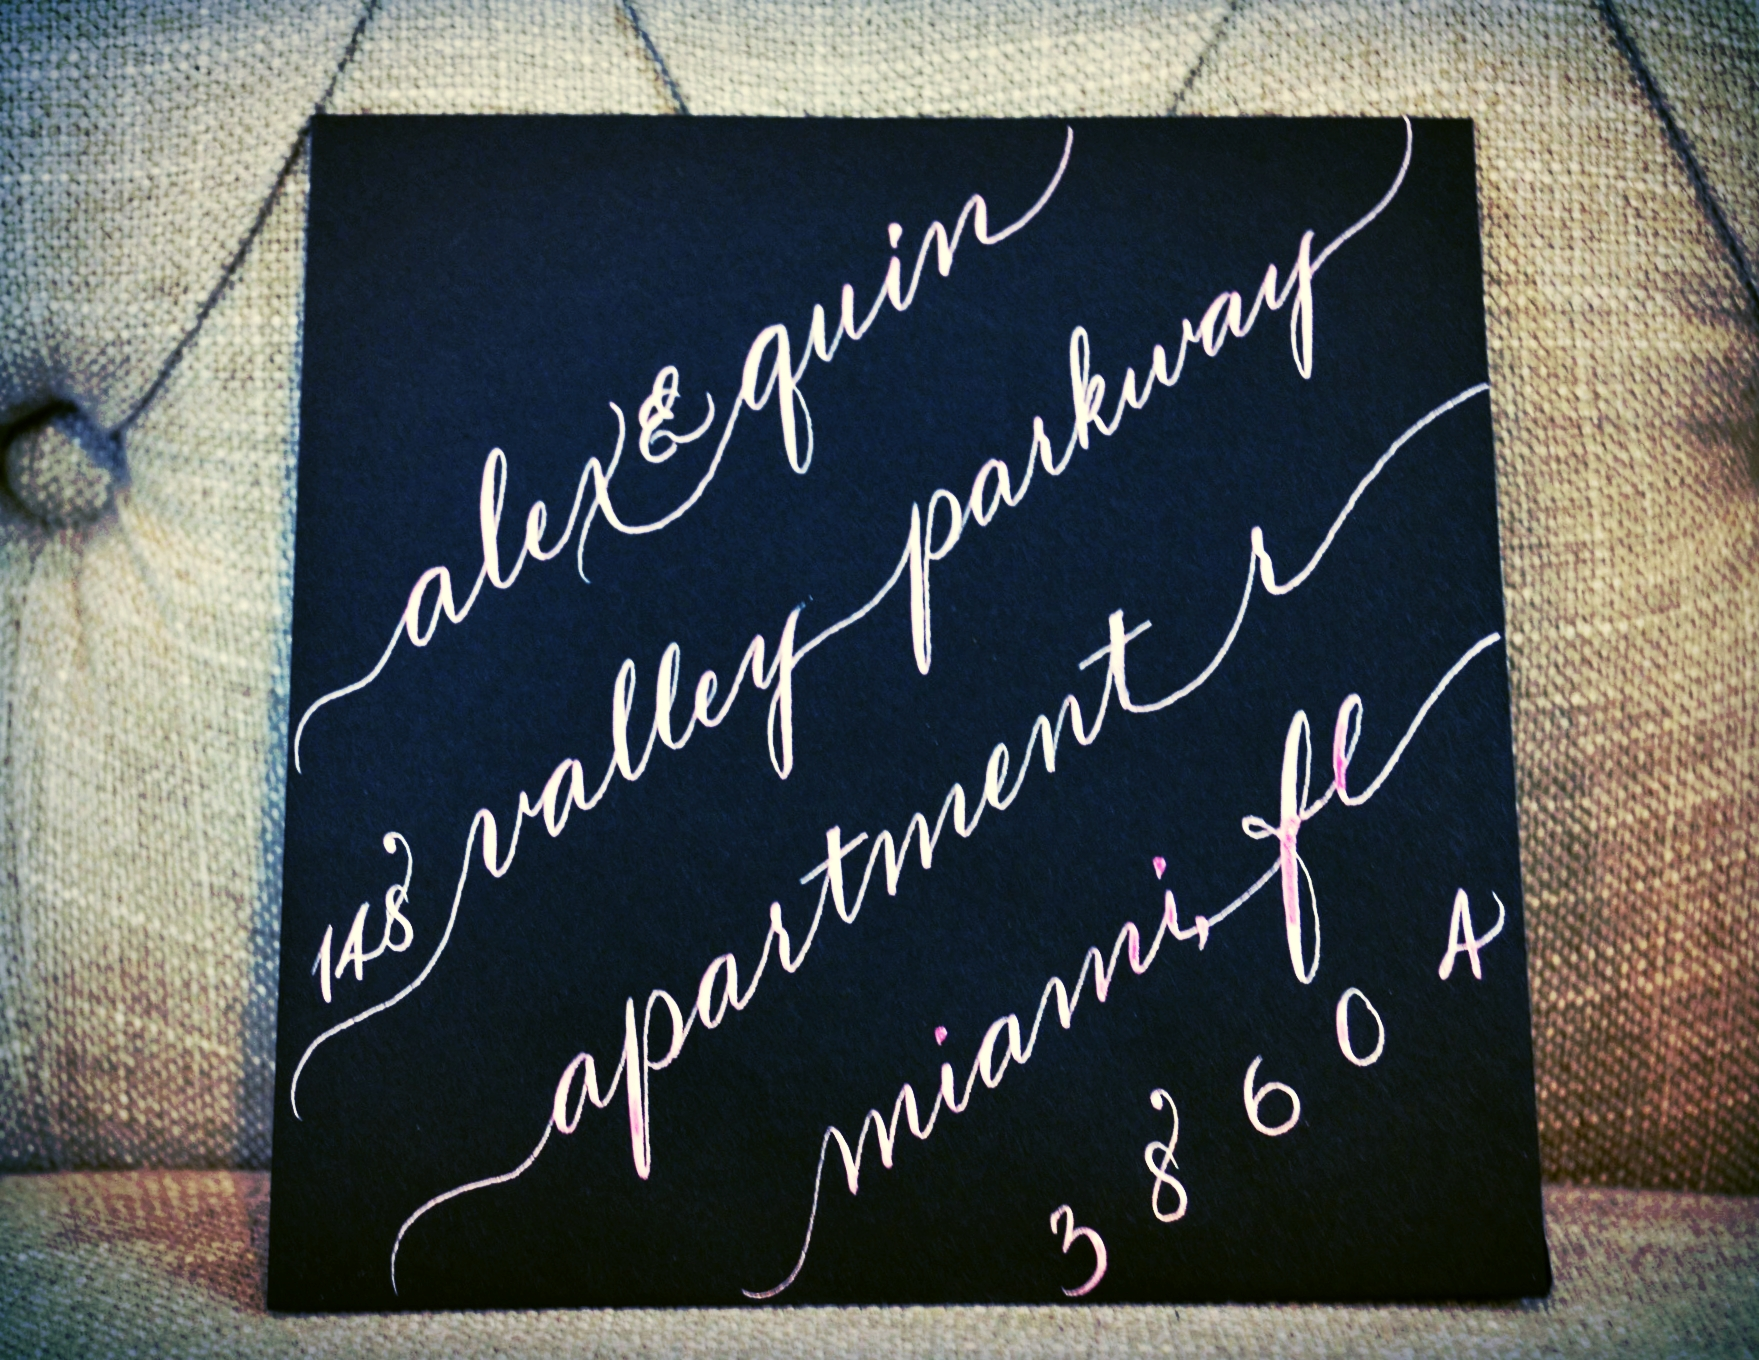 alex & quin
148 valley parkway
apartment r
miami, fl
3 8 6 0 A